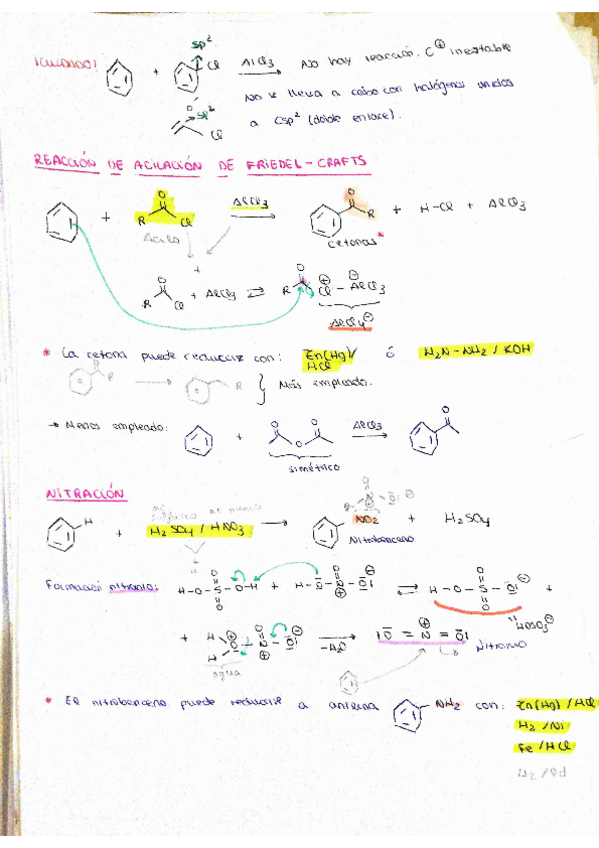 sp²
¡CUIDADO! + Cl AlCl3 No hay reacción. C⊕ inestable
o
No se lleva a cabo con halógenos unidos
sp²
Cl a Csp² (doble enlace).
REACCIÓN DE ACILACIÓN DE FRIEDEL-CRAFTS
H + R O Cl AlCl3 O R + H-Cl + AlCl3
Acilo cetonas *
+
R O Cl + AlCl3 ⇌ R O Cl⊕ - AlCl3⊖
AlCl4⊖
* La cetona puede reducirse con: Zn(Hg)/HCl ó H2N-NH2 / KOH
O R → R } Más empleado.
→ Menos empleado: + O O O AlCl3 O
simétrico
NITRACIÓN
H + H2SO4 / HNO3 → NO2 + H2SO4
Nitrobenceno
Formación nitronio: H-O-S-O-H + H-O-N-O⊖ ⇌ H-O-S-O⊖ +
"HOSO3⊖
+ H H O⊕-N-O⊖ -H2O O=N⊕=O Nitronio
agua
* El nitrobenceno puede reducirse a anilina NH2 con: Zn(Hg) / HCl
H2/Ni
Fe/HCl
H2/Pd